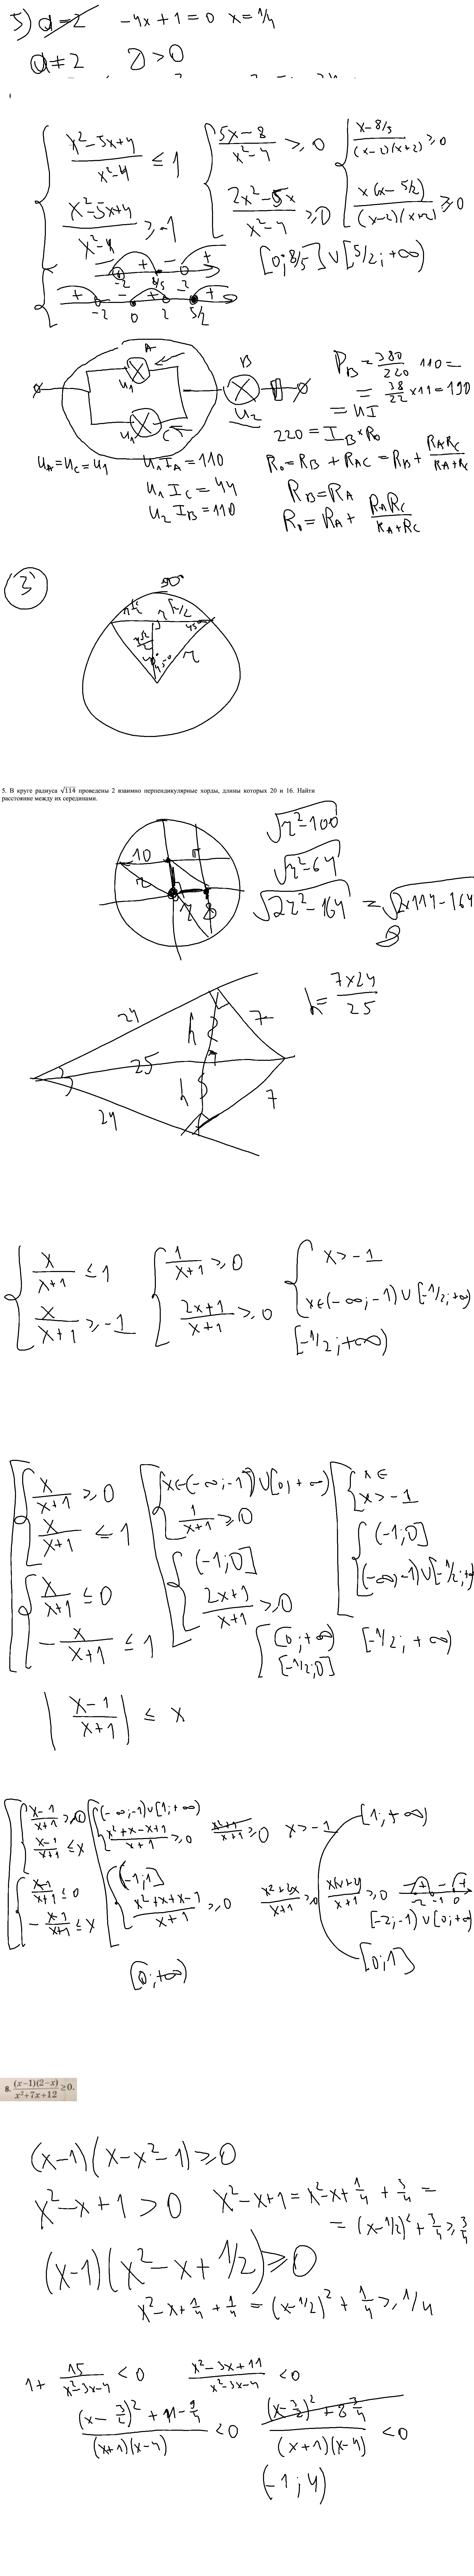 5) a=2 -4x+1=0 x=1/4
a≠2 D>0
{ (x²-5x+4)/(x²-4) ≤ 1 { (5x-8)/(x²-4) ≥ 0 { (x-8/5)/((x-2)(x+2)) ≥ 0
(x²-5x+4)/(x²-4) ≥ -1 (2x²-5x)/(x²-4) ≥ 0 x(x-5/2)/((x-2)(x+2)) ≥ 0
- + - +
-2 8/5 2
[0; 8/5] ∪ [5/2; +∞)
+ - + - +
-2 0 2 5/2
A B
U₁ U₁ C U₂
P_B = 380/220 110 =
= 38/22 × 11 = 190
= UI
220 = I_B × R₀
U_A = U_C = U₁ U₁I_A = 110 R₀ = R_B + R_AC = R_B + R_A R_C/(R_A+R_C)
U₁I_C = 44 R_B = R_A
U₂I_B = 110 R₀ = R_A + R_A R_C/(R_A+R_C)
3
90°
45° 45° r
5. В круге радиуса √114 проведены 2 взаимно перпендикулярные хорды, длины которых 20 и 16. Найти
расстояние между их серединами.
10 r r 8
√(r²-100)
√(r²-64)
√(2r²-164) = √(2×114-164)
8
24 h 7
25
h 7
24
h = 7×24/25
{ x/(x+1) ≤ 1 { 1/(x+1) ≥ 0 { x > -1
x/(x+1) ≥ -1 (2x+1)/(x+1) ≥ 0 x∈(-∞; -1) ∪ [-1/2; +∞)
[-1/2; +∞)
[ { x/(x+1) ≥ 0 [ { x∈(-∞; -1) ∪ [0; +∞) [ { x ∈
x/(x+1) ≤ 1 1/(x+1) ≥ 0 x > -1
{ x/(x+1) ≤ 0 { (-1; 0] { (-1; 0]
-x/(x+1) ≤ 1 (2x+1)/(x+1) ≥ 0 (-∞; -1) ∪ [-1/2; +∞)
[ [0; +∞) [-1/2; +∞)
[-1/2; 0]
| (x-1)/(x+1) | ≤ x
[ { (x-1)/(x+1) ≥ 0 [ { (-∞; -1) ∪ [1; +∞) [1; +∞)
(x-1)/(x+1) ≤ x (x²+x-x+1)/(x+1) ≥ 0 (x²+1)/(x+1) ≥ 0 x > -1
{ (x-1)/(x+1) ≤ 0 { (-1; 1]
-(x-1)/(x+1) ≤ x (x²+x+x-1)/(x+1) ≥ 0
-2 -1 0
[-2; -1) ∪ [0; +∞)
[0; 1]
[0; +∞)
8. (x-1)(2-x)/(x²+7x+12) ≥ 0.
(x-1)(x-x²-1) ≥ 0
x²-x+1 > 0 x²-x+1 = x²-x+1/4 + 3/4 =
= (x-1/2)² + 3/4 ≥ 3/4
(x-1)(x²-x+1/2) ≥ 0
x²-x+1/4+1/4 = (x-1/2)² + 1/4 ≥ 1/4
1 + 15/(x²-3x-4) < 0 (x²-3x+11)/(x²-3x-4) < 0
((x-3/2)² + 11-9/4)/((x+1)(x-4)) < 0 ((x-3/2)² + 8 3/4)/((x+1)(x-4)) < 0
(-1; 4)